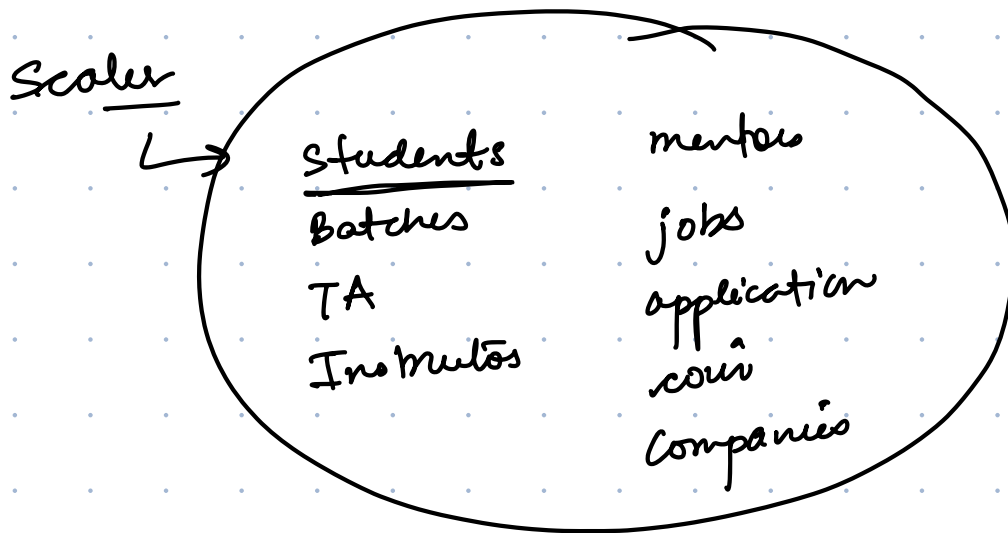 Scaler
Students
Batches
TA
Instructors
mentors
jobs
application
Companies